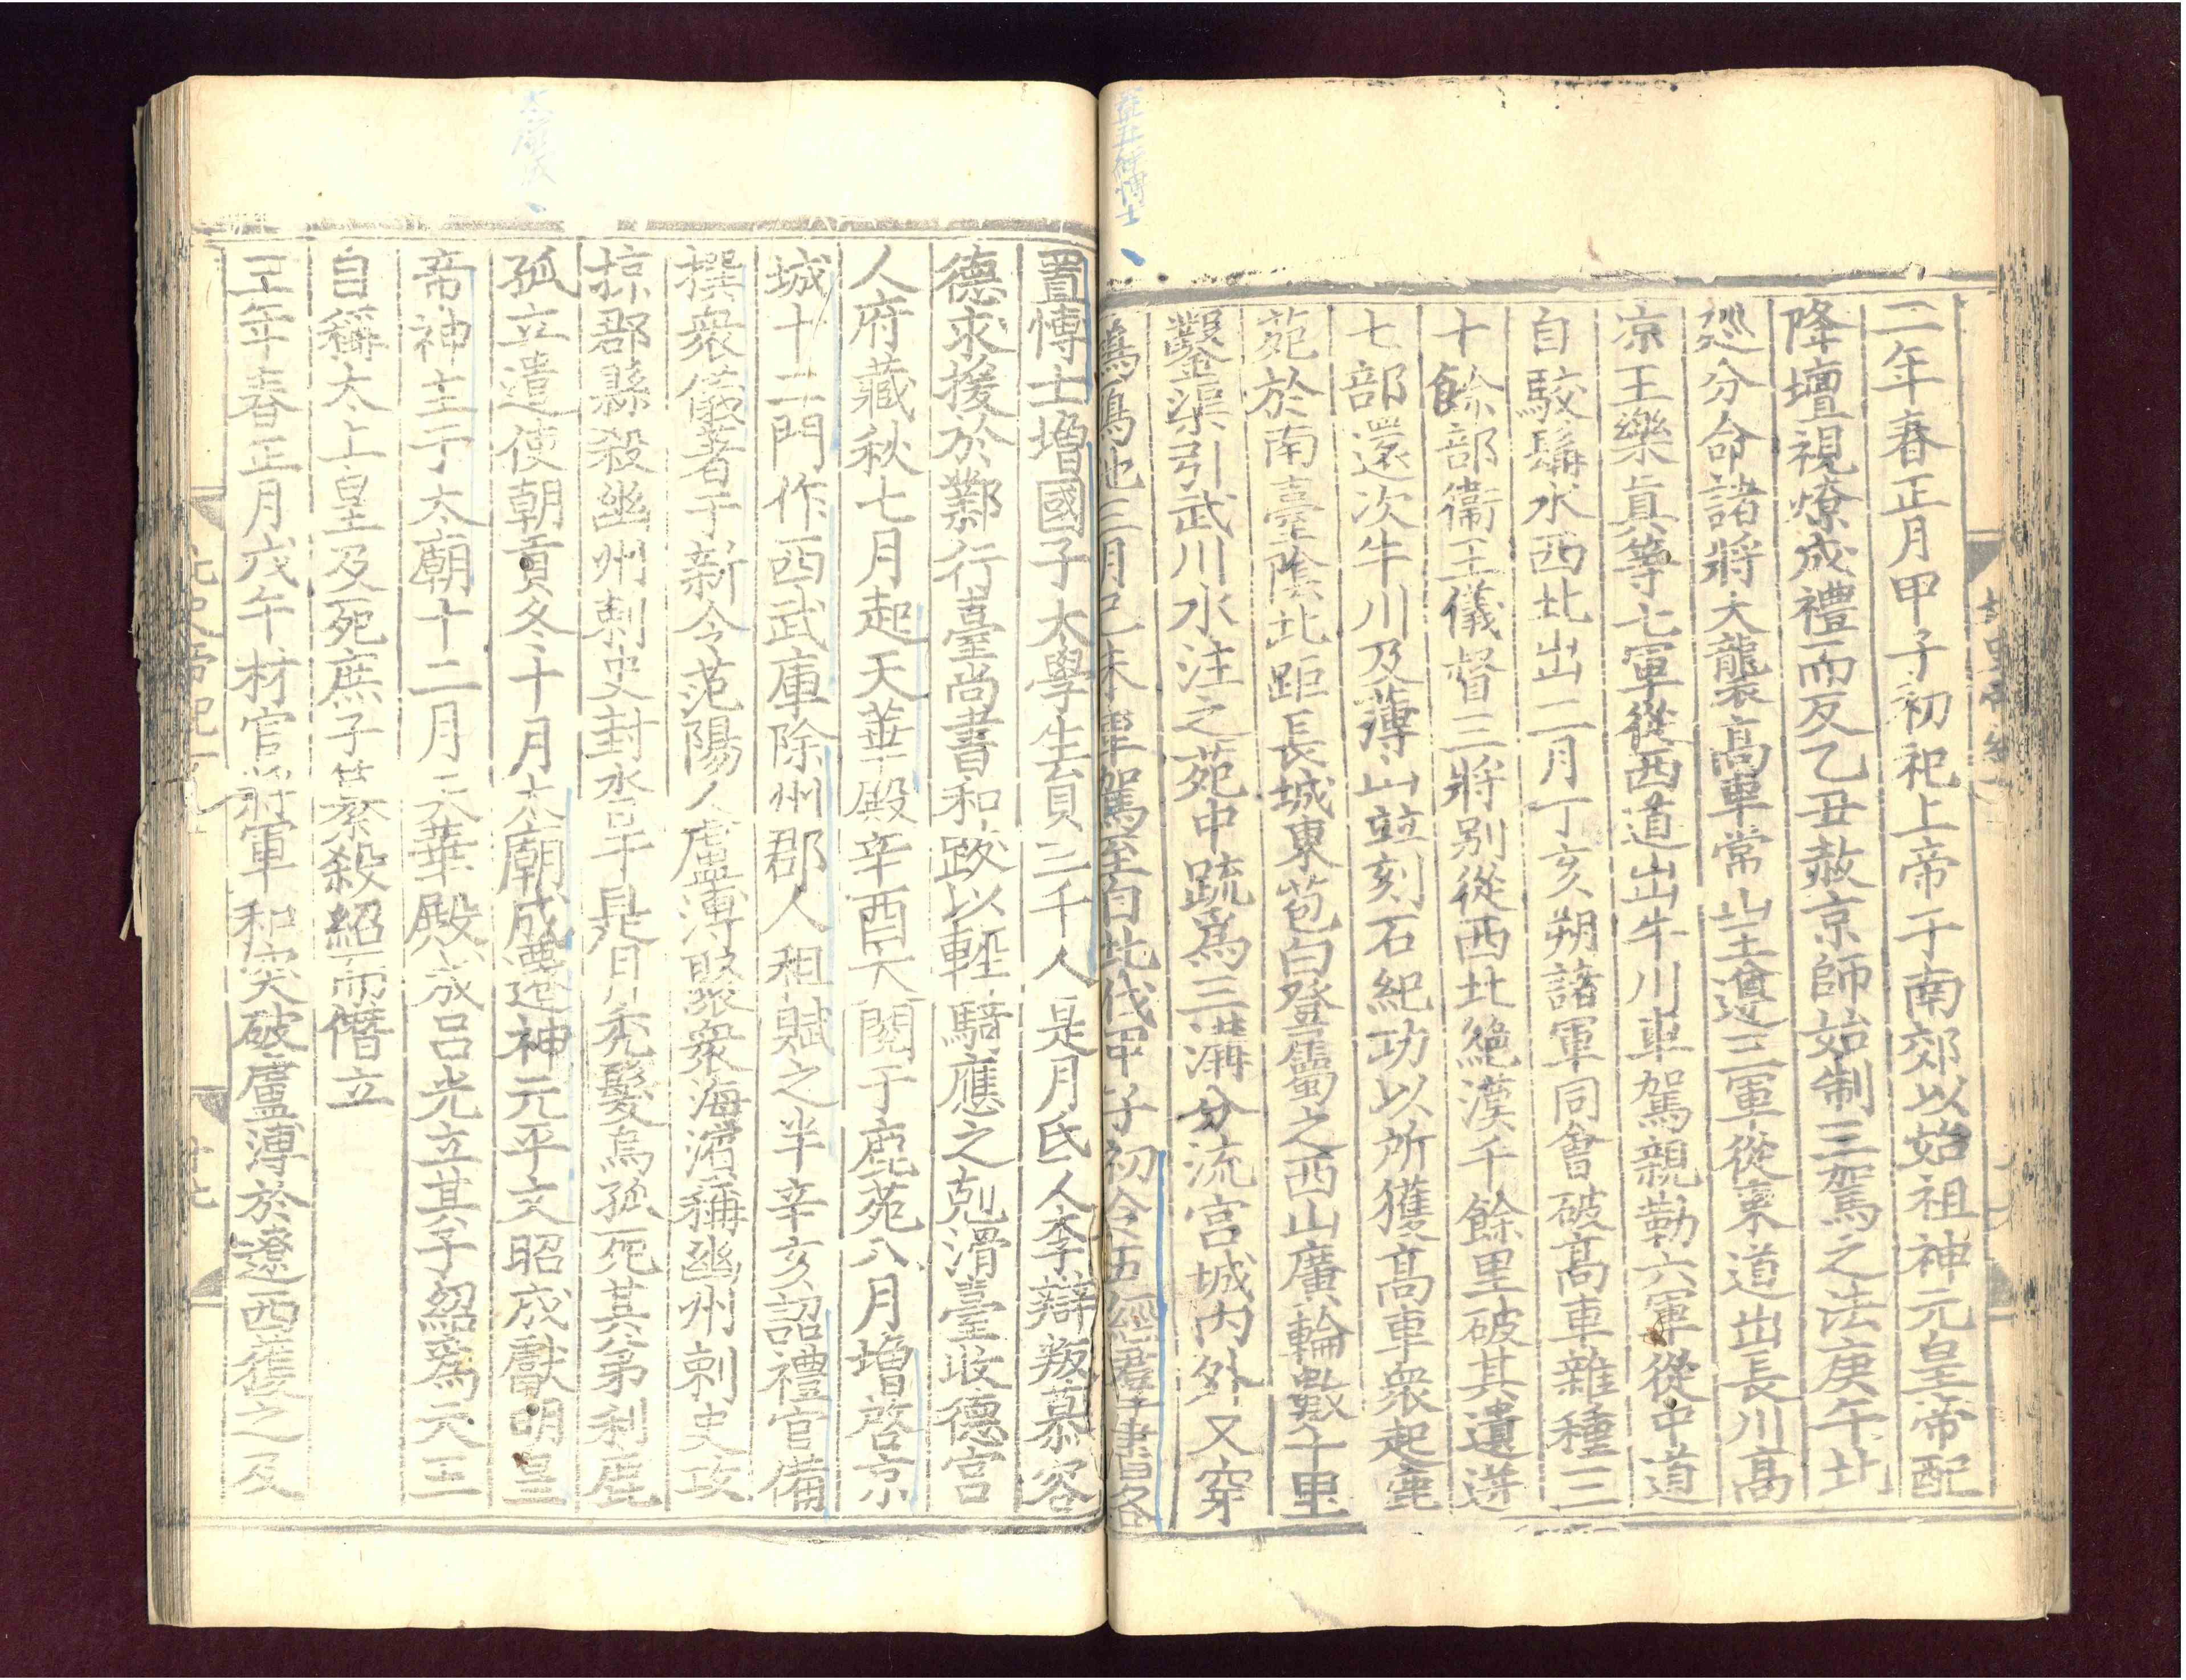 二年春正月甲子初祀上帝于南郊以始祖神元皇帝配
降壇視燎成禮而反乙丑赦京師始制三駕之法庚午北
廵分命諸將大襲高車常山王遵三軍從東道出長川高
凉王樂眞等七軍從西道出牛川車駕親勒六軍從中道
自駮髯水西北出二月丁亥朔諸軍同會破高車雜種三
十餘部衞王儀督三將别從西北絶漠千餘里破其遺迸
七部還次牛川及薄山並刻石紀功以所獲高車衆起鹿
苑於南臺陰北距長城東苞白登屬之西山廣輪數十里
鑿渠引武川水注之苑中疏爲三溝分流宮城内外又穿
鴈池三月己未車駕至自北伐甲子初令五經羣書各
置博士增國子太學生貟三千人是月氐人李辯叛慕容
德求援於鄴行臺尚書和跋以輕騎應之剋滑臺收德宮
人府藏秋七月起天華殿辛酉大閱于鹿苑八月增啓京
城十二門作西武庫除州郡人租賦之半辛亥詔禮官備
撰衆儀著于新令范陽人盧溥聚衆海濱稱幽州刺史攻
掠郡縣殺幽州刺史封沓干是月禿髮烏孤死其弟利鹿
孤立遣使朝貢冬十月太廟成遷神元平文昭成獻明皇
帝神主于太廟十二月天華殿成吕光立其子紹爲天王
自稱太上皇及死庶子纂殺紹而僭立
三年春正月戊午材官將軍和突破盧溥於遼西獲之及
北史帝紀一
廿七
五經博士
太廟成